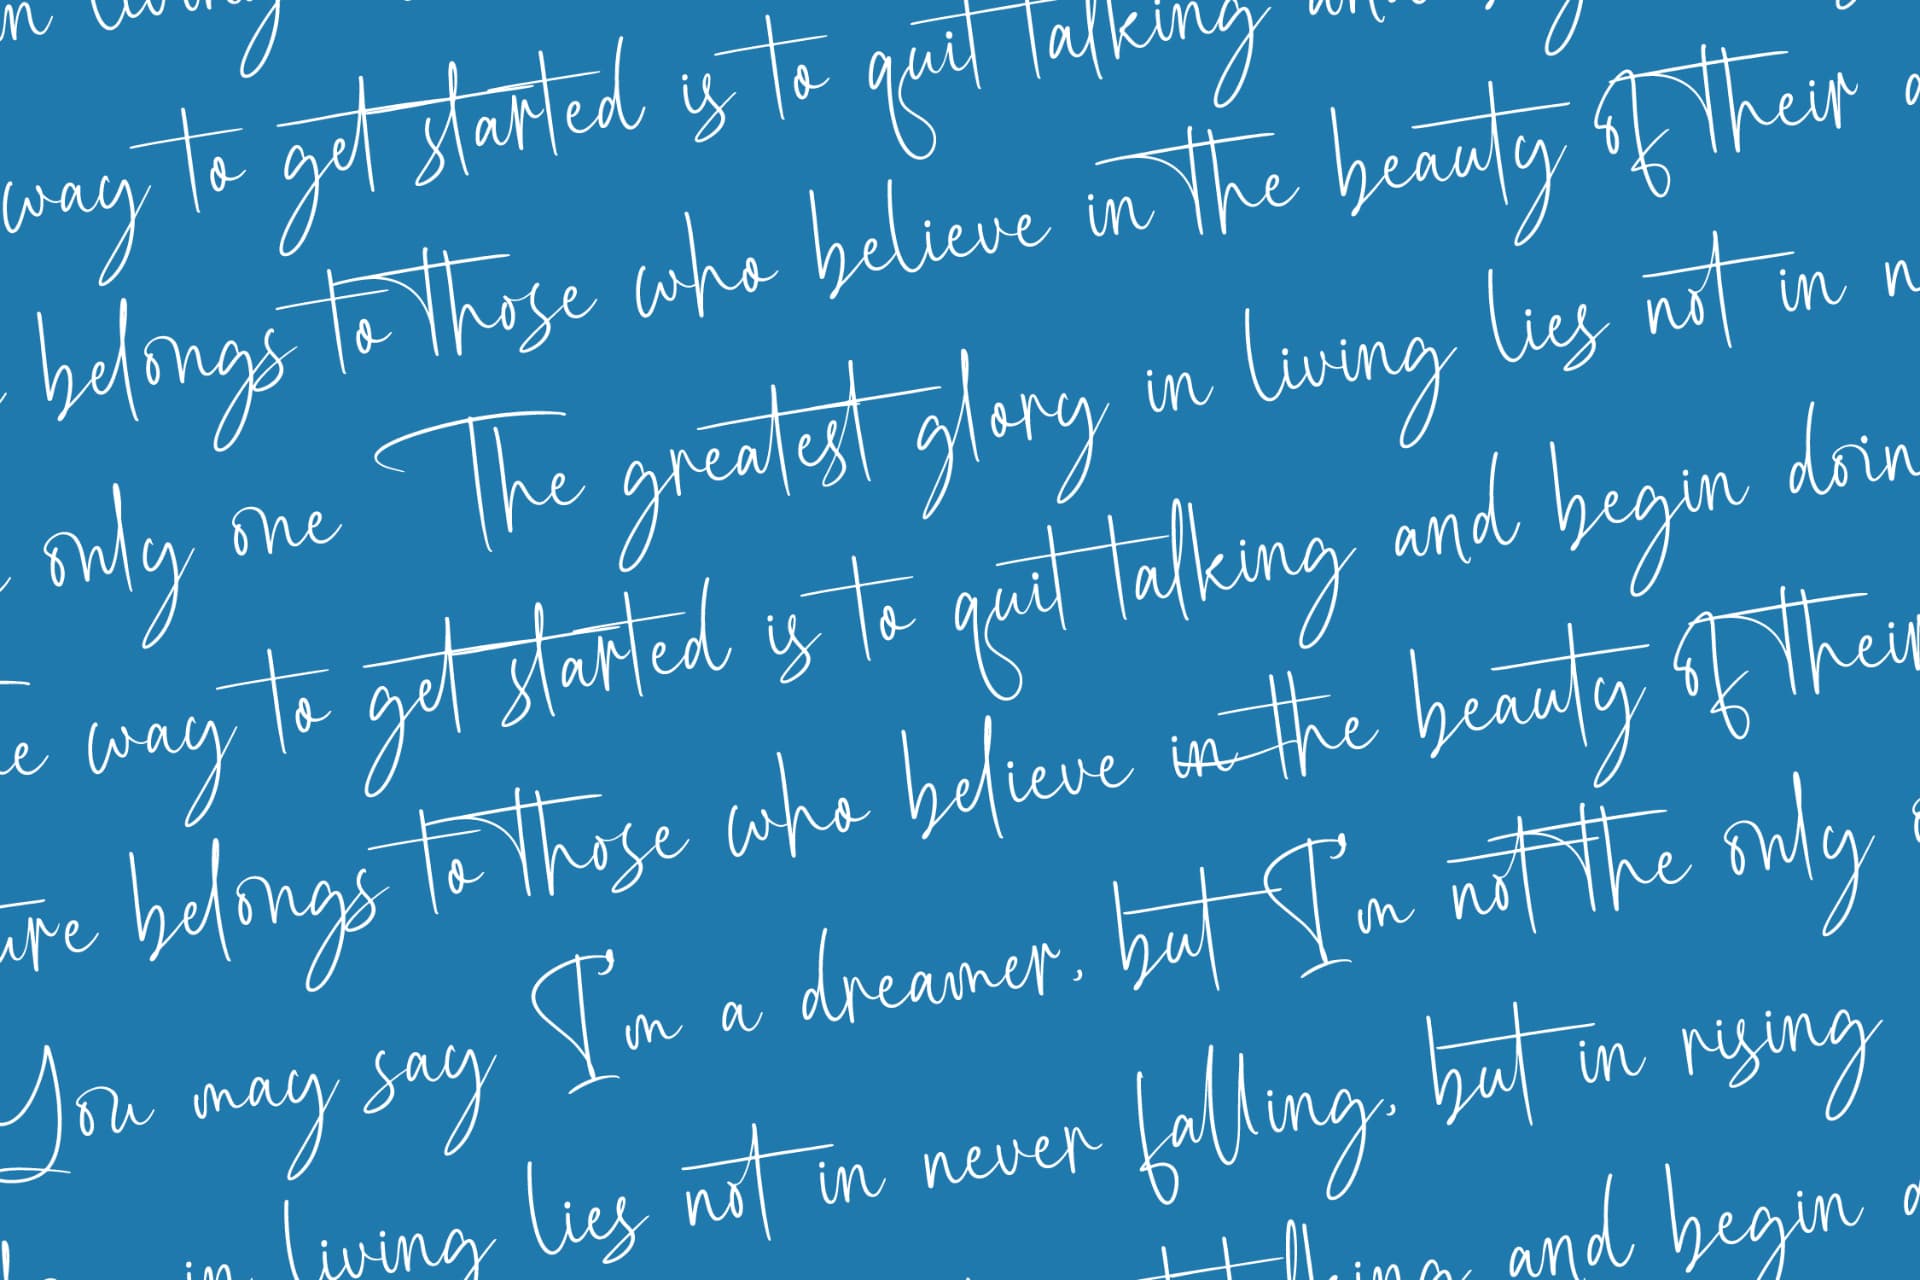 in living
way to get started is to quit talking and
belongs to those who believe in the beauty of their
only one The greatest glory in living lies not in n
e way to get started is to quit talking and begin doin
ure belongs to those who believe in the beauty of their
You may say I'm a dreamer, but I'm not the only
in living lies not in never falling, but in rising
talking and begin